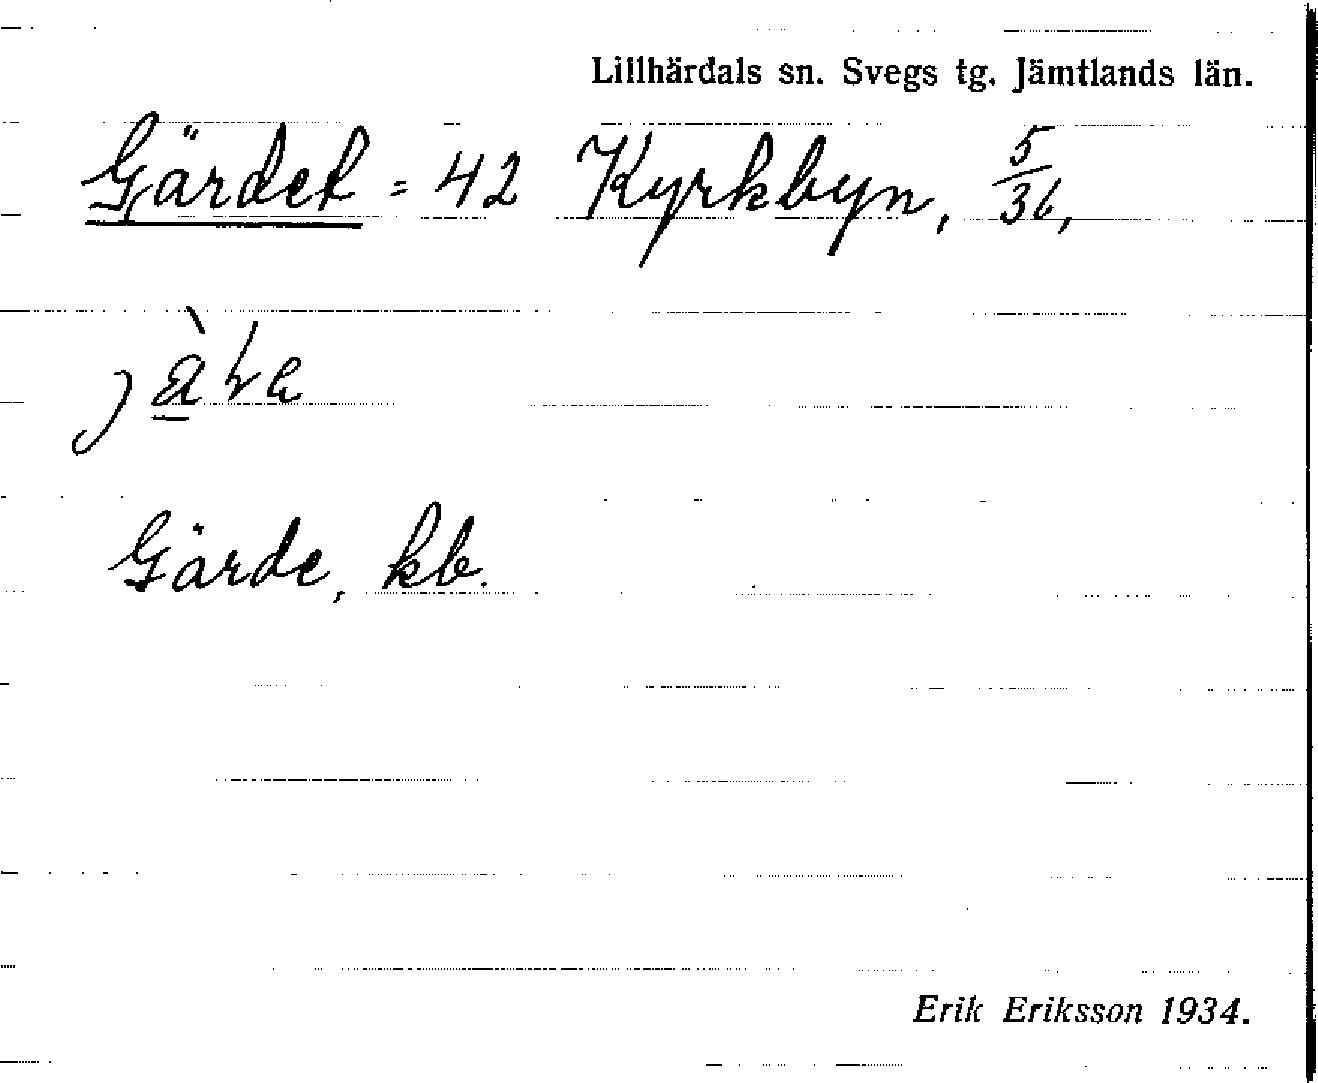 Lillhärdals sn. Svegs tg. Jämtlands län.
Gärdet = 42 Kyrkbyn, 5/36,
Gärde, kb.
Erik Eriksson 1934.